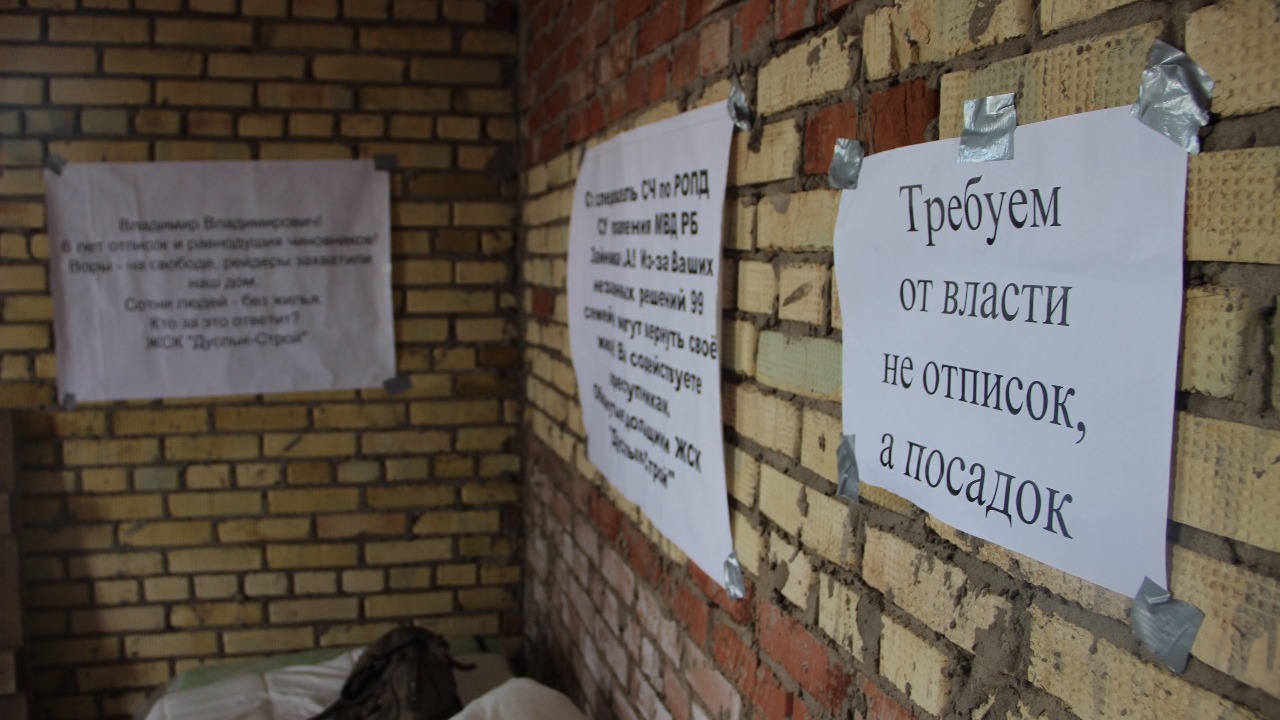 Владимир Владимирович!
6 лет отписок и равнодушия чиновников!
Воры - на свободе, рейдеры захватили
наш дом.
Сотни людей - без жилья.
Кто за это ответит?
ЖСК "Дуслык-Строй"
СЧ по РОПД
МВД РБ
Из-за Ваших
решений 99
семей могут вернуть своё
Вы содействуете
преступникам.
дольщики ЖСК
"Дуслык-Строй"
Требуем
от власти
не отписок,
а посадок